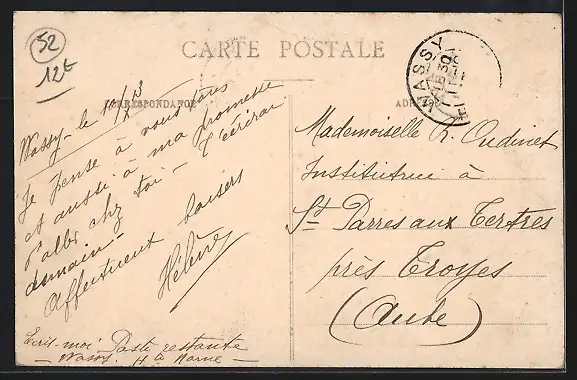 52
12t
CARTE POSTALE
CORRESPONDANCE
ADRE
WASSY
Wassy - le
Je pense à vous tous
et aussi à ma promesse
d'aller chez toi - T'écrirai
demain -
Affectueux baisers
Hélène
Ecris-moi Poste restante
- Wassy. Hte Marne -
Mademoiselle R. Oudinet
Institutrice à
St Parres aux Tertres
près Troyes
(Aube)